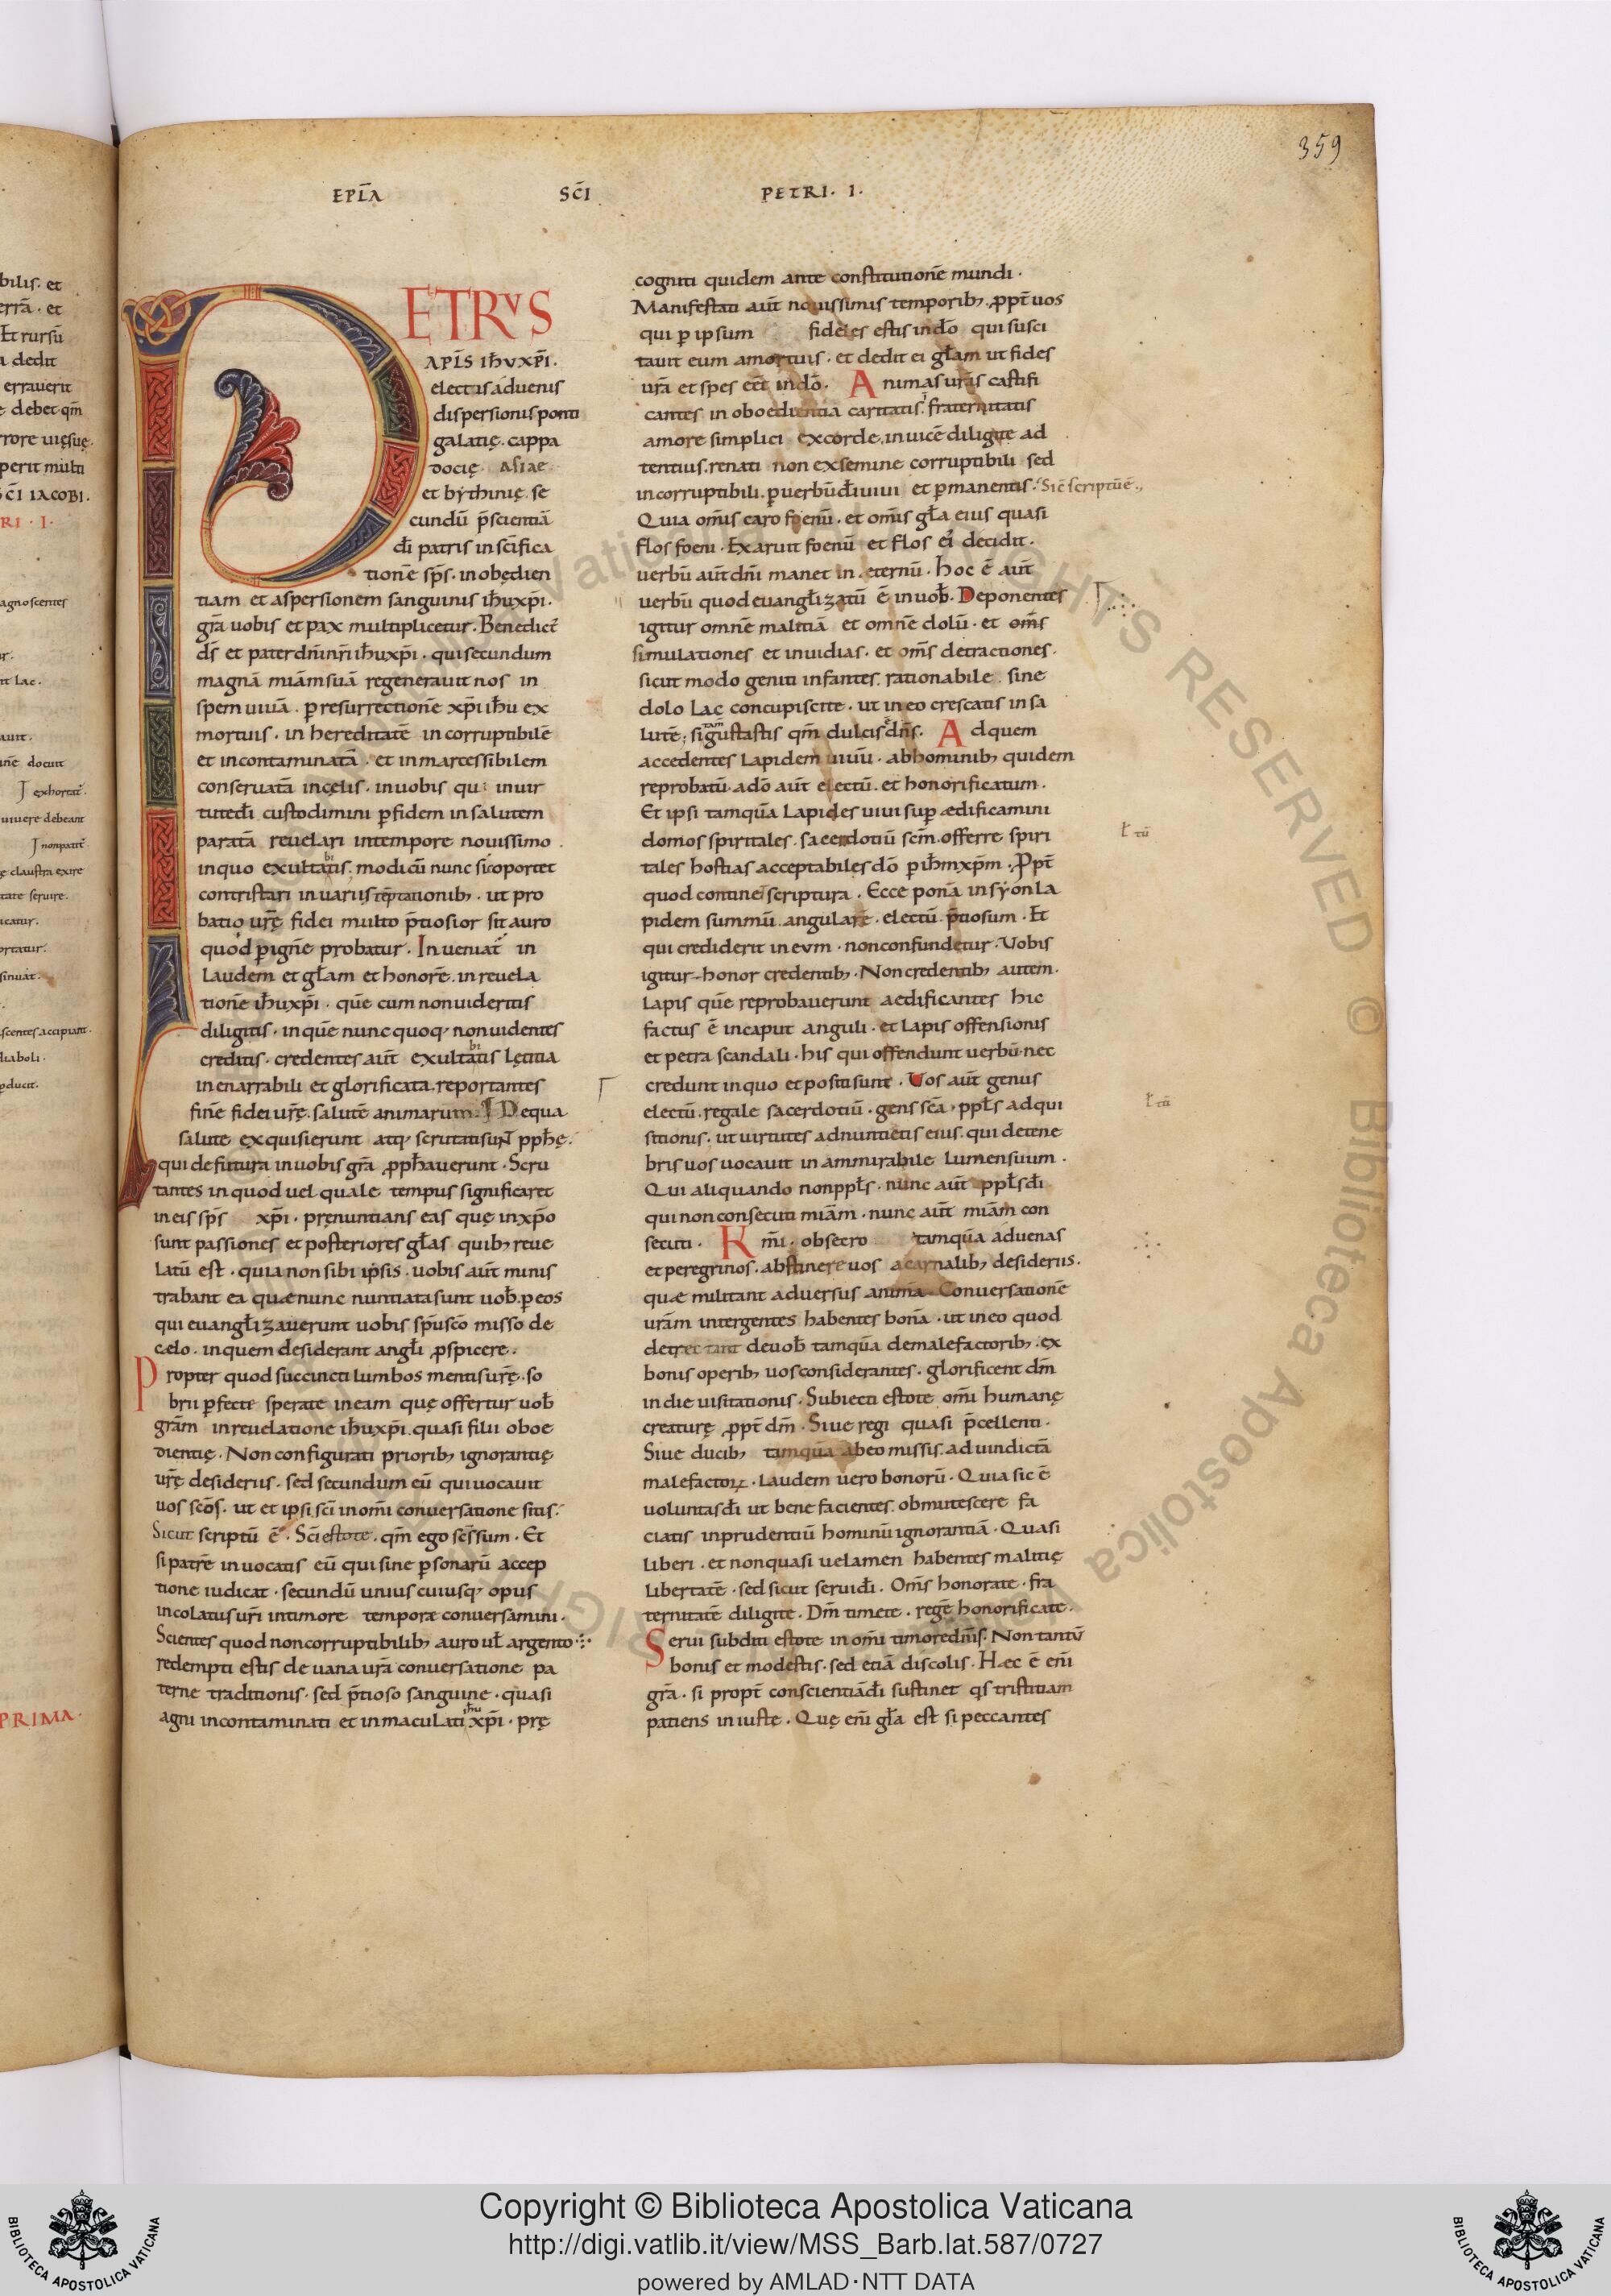 359
EPL̄A SC̄I PETRI · I ·
PETRVS
APL̄S IHVXP̄I ·
electis aduenis
dispersionis ponti
galatię · cappa
docię · asiae
et bythinię · se
cundū p̄scientiā
dī patris in sc̄ifica
tionē sp̄s · in obędien
tiam et aspersionem sanguinis ihuxp̄i ·
gr̄a uobis et pax multiplicetur · Benedict̄
ds̄ et pater dn̄i nr̄i ihuxp̄i · qui secundum
magnā miām suā regenerauit nos in
spem uiuā · p resurrectionē xp̄i ihu ex
mortuis · in hereditatē incorruptibilē
et incontaminatā · et inmarcessibilem
conseruatā in celis · in uobis qui in uir
tute dī custodimini p fidem in salutem
paratā reuelari in tempore nouissimo ·
in quo exultatis · modicū nunc si oportet
contristari in uariis tēptationib; · ut pro
batio ur̄ę fidei multo p̄tiosior sit auro
quod p ignē probatur · Inueniat in
laudem et gl̄am et honorē · in reuela
tionē ihuxp̄i · quē cum non uideritis
diligitis · in quē nunc quoq; non uidentes
creditis · credentes aūt exultatis lętitia
inenarrabili et glorificata · reportantes
finē fidei ur̄ę · salutē animarum · De qua
salute exquisierunt atq; scrutati sunt pphę ·
qui de futura in uobis gr̄a pphauerunt · Scru
tantes in quod uel quale tempus significaret
in eis sp̄s xp̄i · pręnuntians eas quę in xp̄o
sunt passiones et posteriores gl̄as quib; reue
latū est · quia non sibi ipsis · uobis aūt minis
trabant ea quæ nunc nuntiata sunt uob̄ · p eos
qui euangl̄izauerunt uobis sp̄u sc̄o misso de
cælo · in quem desiderant angl̄i pspicere ·
Propter quod succincti lumbos mentis ur̄ę · so
brii pfecte sperate in eam quę offertur uob̄
gr̄am in reuelatione ihuxp̄i · quasi filii oboe
dientię · Non configurati priorib; ignorantię
ur̄ę desideriis · sed secundum eū qui uocauit
uos sc̄os · ut et ipsi sc̄i in om̄i conuersatione sitis ·
Sicut scriptū ē · Sc̄i estote · qm̄ ego sc̄s sum · Et
si patrē inuocatis eū qui sine psonarū accep
tione iudicat · secundū unius cuiusq; opus
incolatus ur̄i in timore tempore conuersamini ·
Scientes quod non corruptibilib; auro ul̄ argento
redempti estis de uana ur̄a conuersatione pa
terne traditionis · sed p̄tioso sanguine · quasi
agni incontaminati et inmaculati ihu xp̄i · prę
cogniti quidem ante constitutionē mundi ·
Manifestati aūt nouissimis temporib; ppt̄ uos
qui p ipsum fideles estis in dō qui susci
tauit eum a mortuis · et dedit ei gl̄am ut fides
ur̄a et spes eēt in dō · Animas ur̄as castifi
cantes in oboedientia caritatis · fraternitatis
amore simplici ex corde · inuicē diligite ad
tentius · renati non ex semine corruptibili sed
incorruptibili · p uerbū dī uiui et pmanentis · Sic̄ scriptū ē ·
Quia om̄is caro foenū · et om̄is gl̄a eius quasi
flos foeni · Exaruit foenū et flos ei decidit ·
uerbū aūt dn̄i manet in eternū · hoc ē aūt
uerbū quod euangl̄izatū ē in uob̄ · Deponentes
igitur omnē malitiā et omnē dolū · et om̄s
simulationes et inuidias · et om̄s detractiones ·
sicut modo geniti infantes rationabile · sine
dolo lac concupiscite · ut in eo crescatis in sa
lutē ; si gustastis qm̄ dulcis dn̄s · Ad quem
accedentes lapidem uiuū · ab hominib; quidem
reprobatū · a dō aūt electū · et honorificatum ·
Et ipsi tamquā lapides uiui sup ædificamini
domos spiritales · sacerdotiū sc̄m · offerre spiri
tales hostias acceptabiles dō p ihm xp̄m · Ppt̄
l̄ tū
quod continet scriptura · Ecce ponā in syon la
pidem summū angularē · electū · p̄tiosum · Et
qui crediderit in eum · non confundetur · Uobis
igitur honor credentib; · Non credentib; autem ·
lapis quē reprobauerunt aedificantes hic
factus ē in caput anguli · et lapis offensionis
et petra scandali · his qui offendunt uerbū · nec
credunt in quo et positi sunt · Vos aūt genus
electū · regale sacerdotiū · gens sc̄a · ppl̄s adqui
sitionis · ut uirtutes adnuntietis eius · qui de tene
bris uos uocauit in ammirabile lumen suum ·
Qui aliquando non ppl̄s · nunc aūt ppl̄s dī
qui non consecuti miām · nunc aūt miām con
secuti · Km̄i · obsecro tamquā aduenas
et peregrinos · abstinere uos a carnalib; desideriis ·
quæ militant aduersus animā · Conuersationē
urām inter gentes habentes bonā · ut in eo quod
detrectant de uob̄ tamquā de malefactorib; · ex
bonis operib; uos considerantes · glorificent dm̄
in die uisitationis · Subiecti estote om̄i humanę
creaturę ppt̄ dm̄ · Siue regi quasi p̄cellenti ·
Siue ducib; tamquā ab eo missis · ad uindictā
malefactoꝝ · laudem uero bonorū · Quia sic ē
uoluntas dī ut bene facientes · obmutescere fa
ciatis inprudentiū hominū ignorantiā · Quasi
liberi · et non quasi uelamen habentes malitię
libertatē · sed sicut serui dī · Om̄s honorate · fra
ternitatē diligite · Dm̄ timete · regē honorificate ·
Serui subditi estote in om̄i timore dn̄is · Non tantū
bonis et modestis · sed etiā discolis · Hæc ē eni̅
gr̄a · si propt̄ conscientiā dī sustinet qs tristitiam
patiens iniuste · Quę eni̅ gl̄a est si peccantes
Copyright © Biblioteca Apostolica Vaticana
http://digi.vatlib.it/view/MSS_Barb.lat.587/0727
powered by AMLAD·NTT DATA